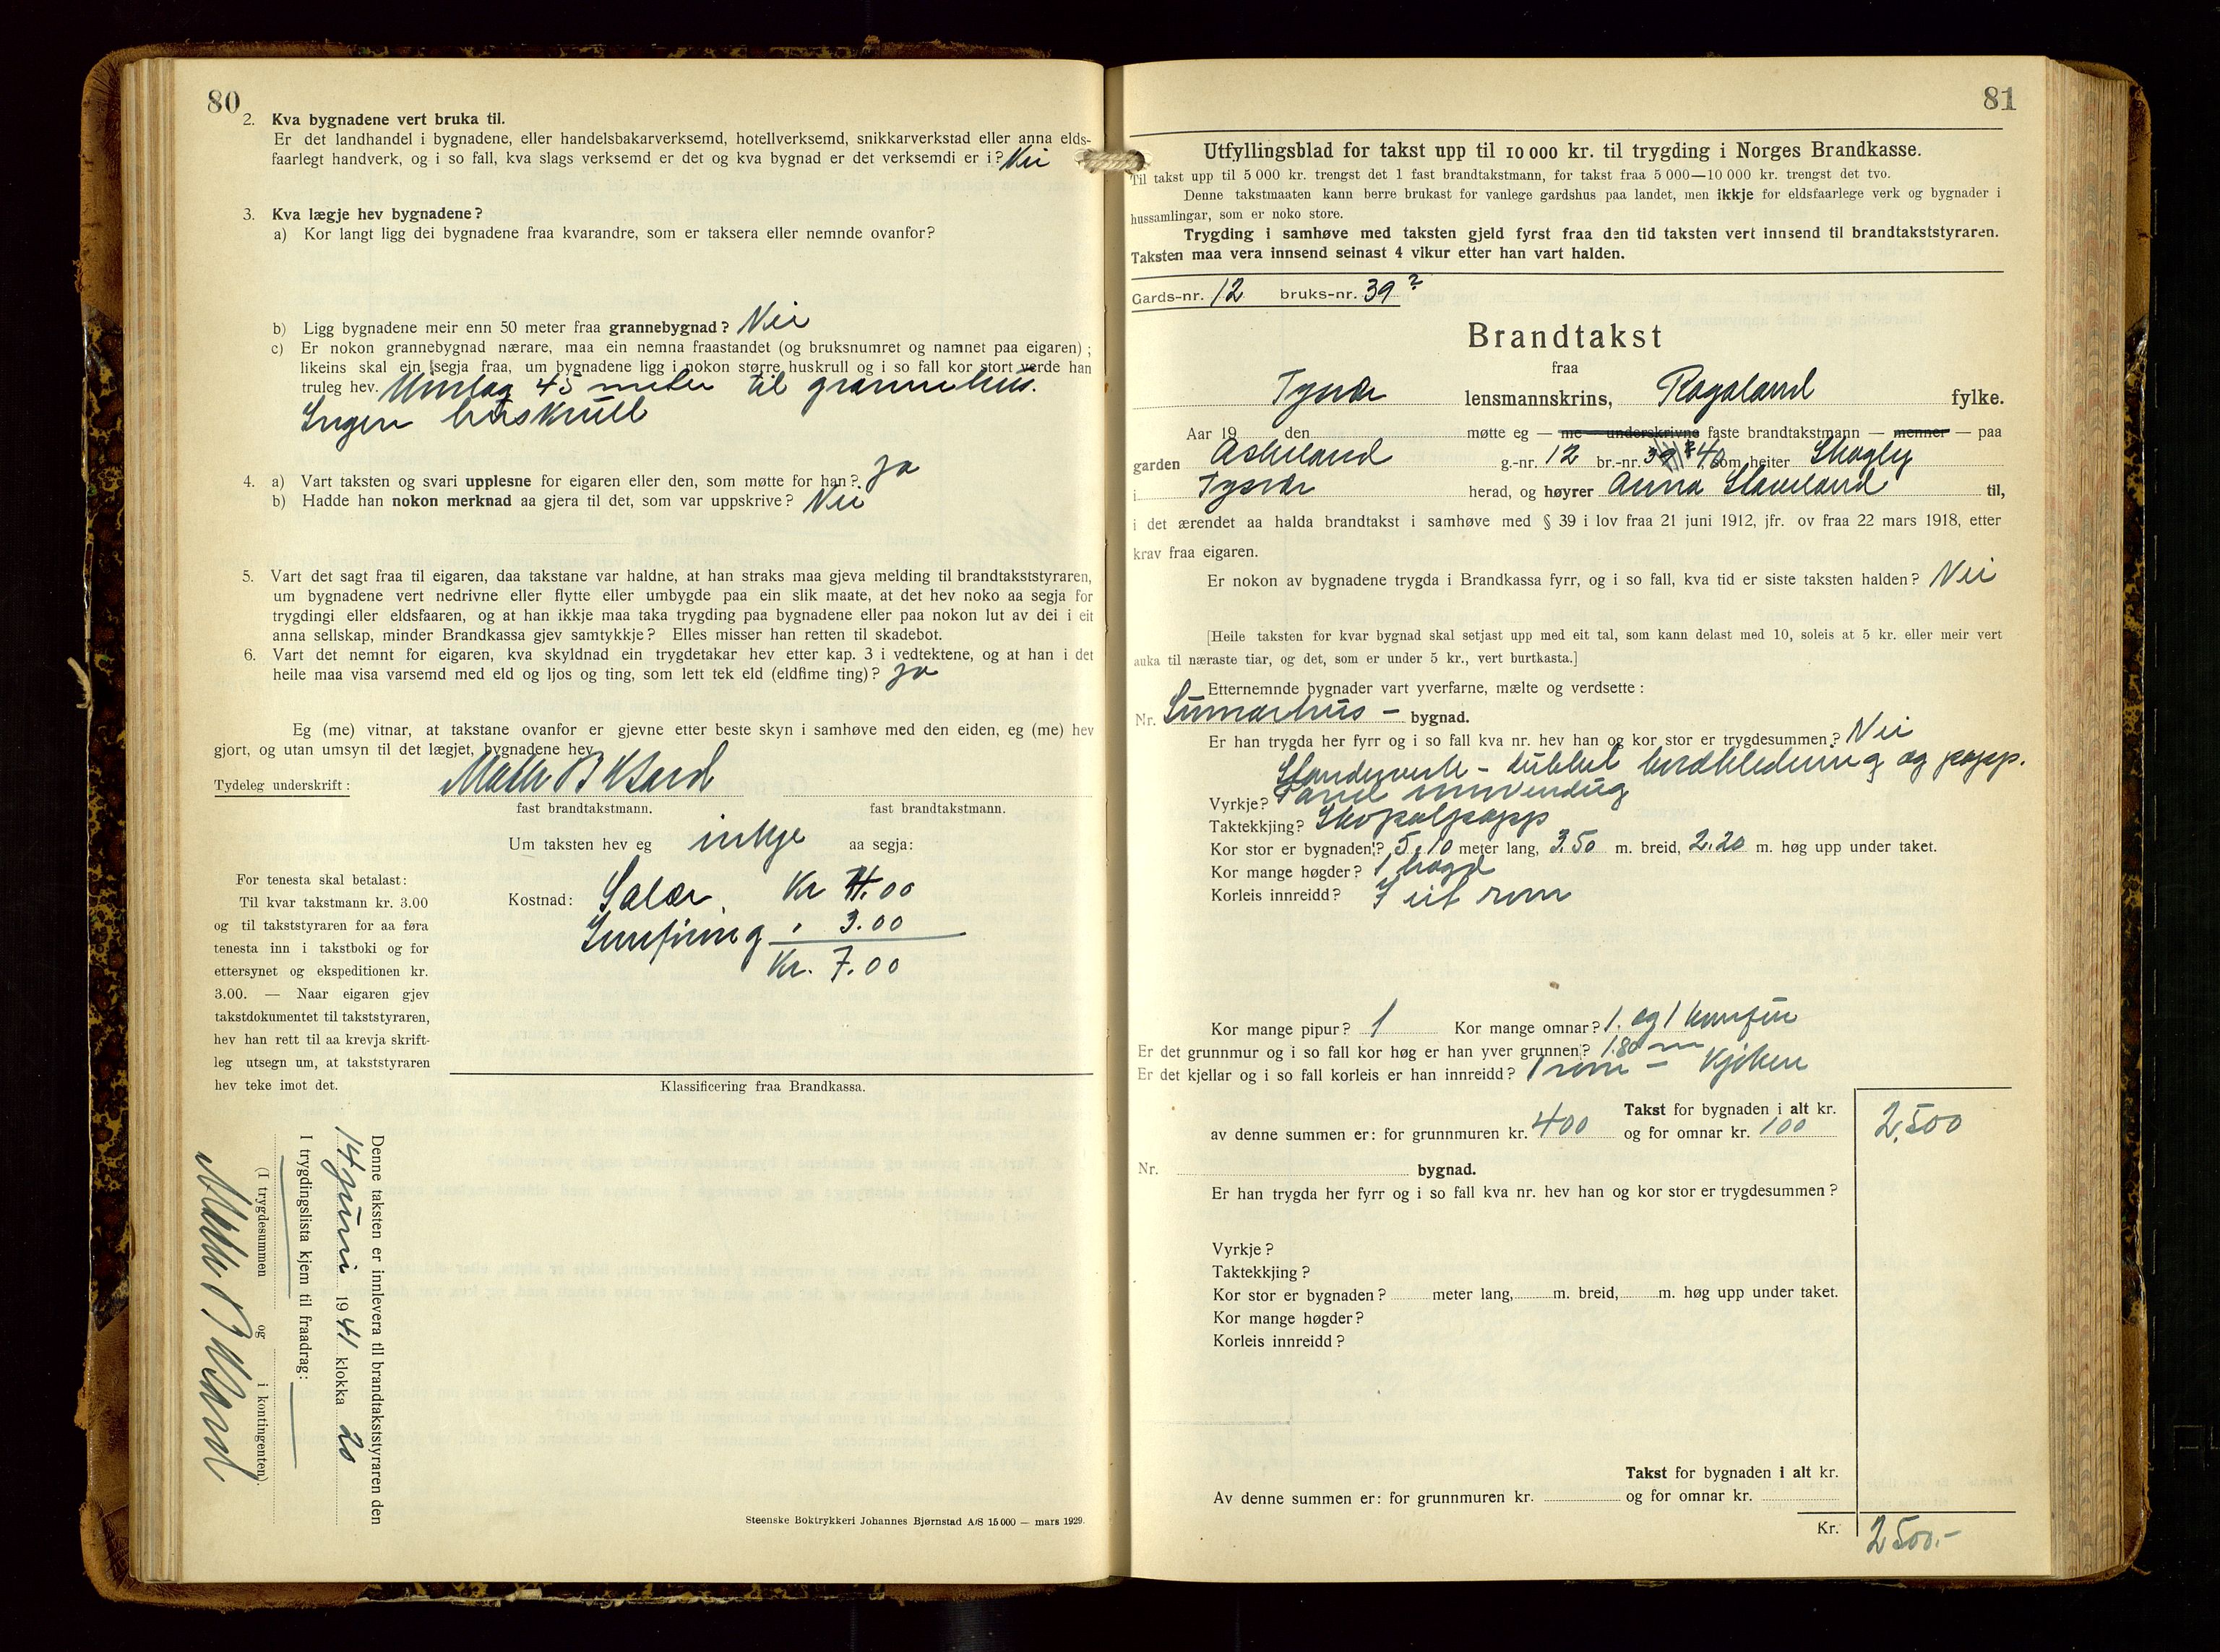 80
2. Kva bygnadene vert bruka til.
Er det landhandel i bygnadene, eller handelsbakarverksemd, hotellverksemd, snikkarverkstad eller anna elds-
faarlegt handverk, og i so fall, kva slags verksemd er det og kva bygnad er det verksemdi er i? Nei
3. Kva lægje hev bygnadene?
a) Kor langt ligg dei bygnadene fraa kvarandre, som er taksera eller nemnde ovanfor?
b) Ligg bygnadene meir enn 50 meter fraa grannebygnad? Nei
c) Er nokon grannebygnad nærare, maa ein nemna fraastandet (og bruksnumret og namnet paa eigaren) ;
likeins skal ein segja fraa, um bygnadene ligg i nokon større huskrull og i so fall kor stort verde han
truleg hev. Umlag 45 meter til grannehus.
Ingen huskrull
4. a) Vart taksten og svari upplesne for eigaren eller den, som møtte for han? ja
b) Hadde han nokon merknad aa gjera til det, som var uppskrive? Nei
5. Vart det sagt fraa til eigaren, daa takstane var haldne, at han straks maa gjeva melding til brandtakststyraren,
um bygnadene vert nedrivne eller flytte eller umbygde paa ein slik maate, at det hev noko aa segja for
trygdingi eller eldsfaaren, og at han ikkje maa taka trygding paa bygnadene eller paa nokon lut av dei i eit
anna sellskap, minder Brandkassa gjev samtykkje? Elles misser han retten til skadebot.
6. Vart det nemnt for eigaren, kva skyldnad ein trygdetakar hev etter kap. 3 i vedtektene, og at han i det
heile maa visa varsemd med eld og ljos og ting, som lett tek eld (eldfime ting)? ja
Eg (me) vitnar, at takstane ovanfor er gjevne etter beste skyn i samhøve med den eiden, eg (me) hev
gjort, og utan umsyn til det lægjet, bygnadene hev.
Tydeleg underskrift:
fast brandtakstmann. fast brandtakstmann.
Um taksten hev eg inkje aa segja:
Kostnad: Salær, Kr 4.00
Innføring " 3.00
Kr. 7.00
For tenesta skal betalast:
Til kvar takstmann kr. 3.00
og til takststyraren for aa føra
tenesta inn i takstboki og for
ettersynet og ekspeditionen kr.
3.00. — Naar eigaren gjev
takstdokumentet til takststyraren,
hev han rett til aa krevja skrift-
leg utsegn um, at takststyraren
hev teke imot det.
Klassificering fraa Brandkassa.
Denne taksten er innlevera til brandtakststyraren den
14 juni 1941 klokka 20
I trygdingslista kjem til fraadrag:
(I trygdesummen og i kontingenten).
Steenske Boktrykkeri Johannes Bjørnstad A/S 15 000 — mars 1929.
81
Utfyllingsblad for takst upp til 10 000 kr. til trygding i Norges Brandkasse.
Til takst upp til 5 000 kr. trengst det 1 fast brandtakstmann, for takst fraa 5 000—10 000 kr. trengst det tvo.
Denne takstmaaten kann berre brukast for vanlege gardshus paa landet, men ikkje for eldsfaarlege verk og bygnader i
hussamlingar, som er noko store.
Trygding i samhøve med taksten gjeld fyrst fraa den tid taksten vert innsend til brandtakststyraren.
Taksten maa vera innsend seinast 4 vikur etter han vart halden.
Gards-nr. 12 bruks-nr. 39 ?
Brandtakst
fraa
Tysvær lensmannskrins, Rogaland fylke.
Aar 19 den møtte eg — me underskrivne faste brandtakstmann — menner — paa
garden Askeland g.-nr. 12 br.-nr. 39 ? 40 som heiter Skogly
i Tysvær herad, og høyrer Anna Slaveland til,
i det ærendet aa halda brandtakst i samhøve med § 39 i lov fraa 21 juni 1912, jfr. ov fraa 22 mars 1918, etter
krav fraa eigaren.
Er nokon av bygnadene trygda i Brandkassa fyrr, og i so fall, kva tid er siste taksten halden? Nei
[Heile taksten for kvar bygnad skal setjast upp med eit tal, som kann delast med 10, soleis at 5 kr. eller meir vert
auka til næraste tiar, og det, som er under 5 kr., vert burtkasta.]
Etternemnde bygnader vart yverfarne, mælte og verdsette :
Nr. Sumarhus — bygnad.
Er han trygda her fyrr og i so fall kva nr. hev han og kor stor er trygdesummen? Nei
Standerverk - dubbel bordkledning og papp.
Vyrkje? Panel innvendug
Taktekkjing? Skopalpapp
Kor stor er bygnaden? 5.10 meter lang, 3.50 m. breid, 2.20 m. høg upp under taket.
Kor mange høgder? 1 høgd
Korleis innreidd? I eit rom
Kor mange pipur? 1 Kor mange omnar? 1. og 1 komfur
Er det grunnmur og i so fall kor høg er han yver grunnen? 1.80 m
Er det kjellar og i so fall korleis er han innreidd? 1 rom - Kjøken
Takst for bygnaden i alt kr. 2,500
av denne summen er: for grunnmuren kr. 400 og for omnar kr. 100
Nr. bygnad.
Er han trygda her fyrr og i so fall kva nr. hev han og kor stor er trygdesummen?
Vyrkje?
Taktekkjing?
Kor stor er bygnaden? meter lang, m. breid, m. høg upp under taket.
Kor mange høgder?
Korleis innreidd?
Takst for bygnaden i alt kr.
Av denne summen er: for grunnmuren kr. og for omnar kr.
Kr. 2500.-